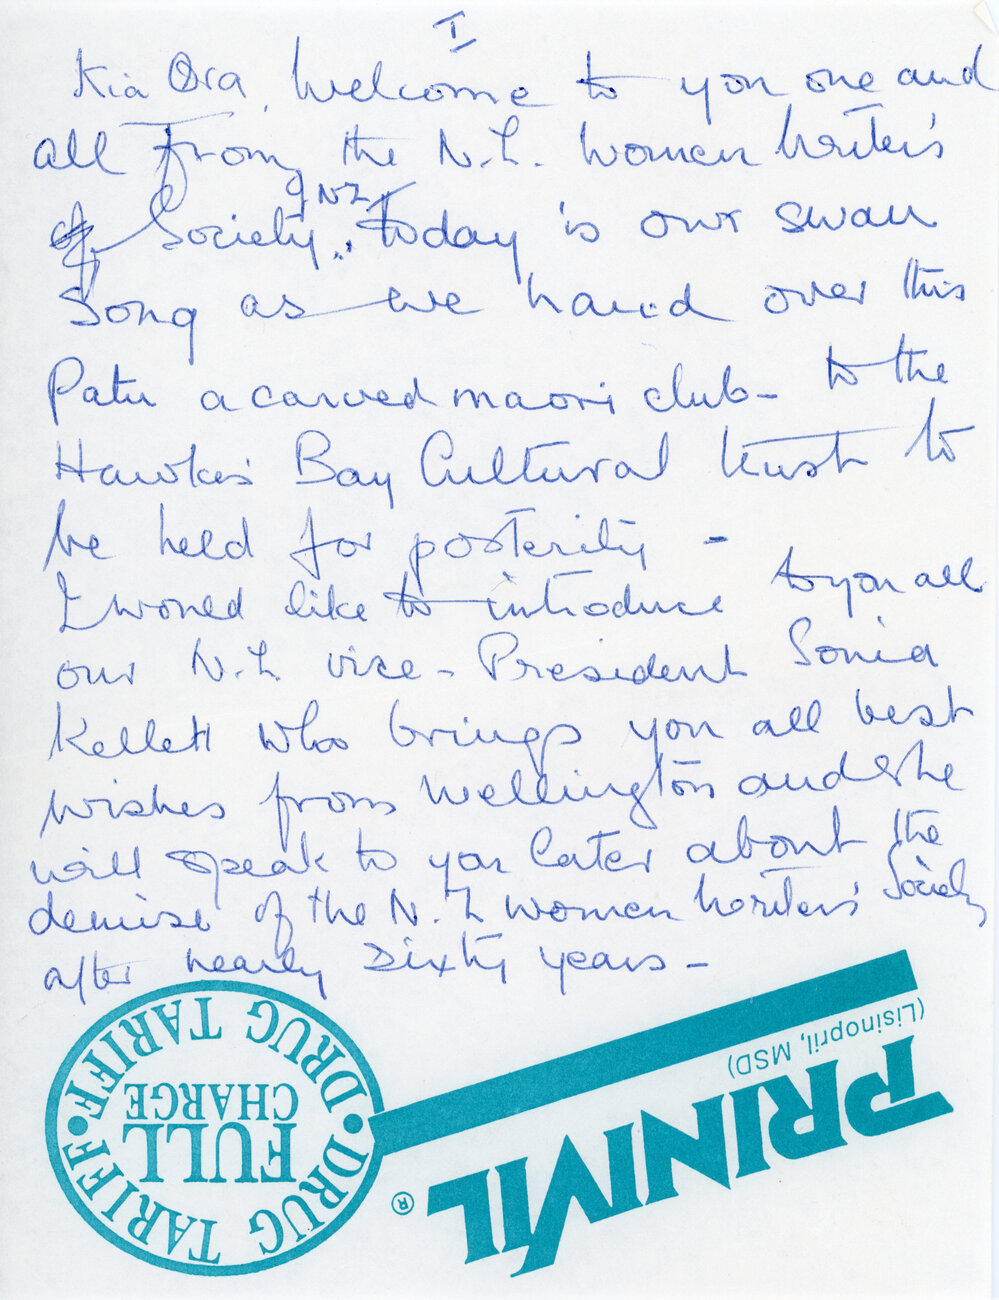 I
Kia Ora, Welcome to you one and
all from the N.Z. Women Writers
of NZ
Society. Today is our swan
Song as we hand over this
Patu a carved maori club - to the
Hawkes Bay Cultural trust to
be held for posterity -
I would like to introduce to you all
our N.Z. vice-President Sonia
Kellett who brings you all best
wishes from Wellington and she
will speak to you later about the
demise of the N.Z women writers' Society
after nearly Sixty years -
DRUG TARIFF • DRUG TARIFF •
FULL
CHARGE
PRINIVIL®
(Lisinopril, MSD)